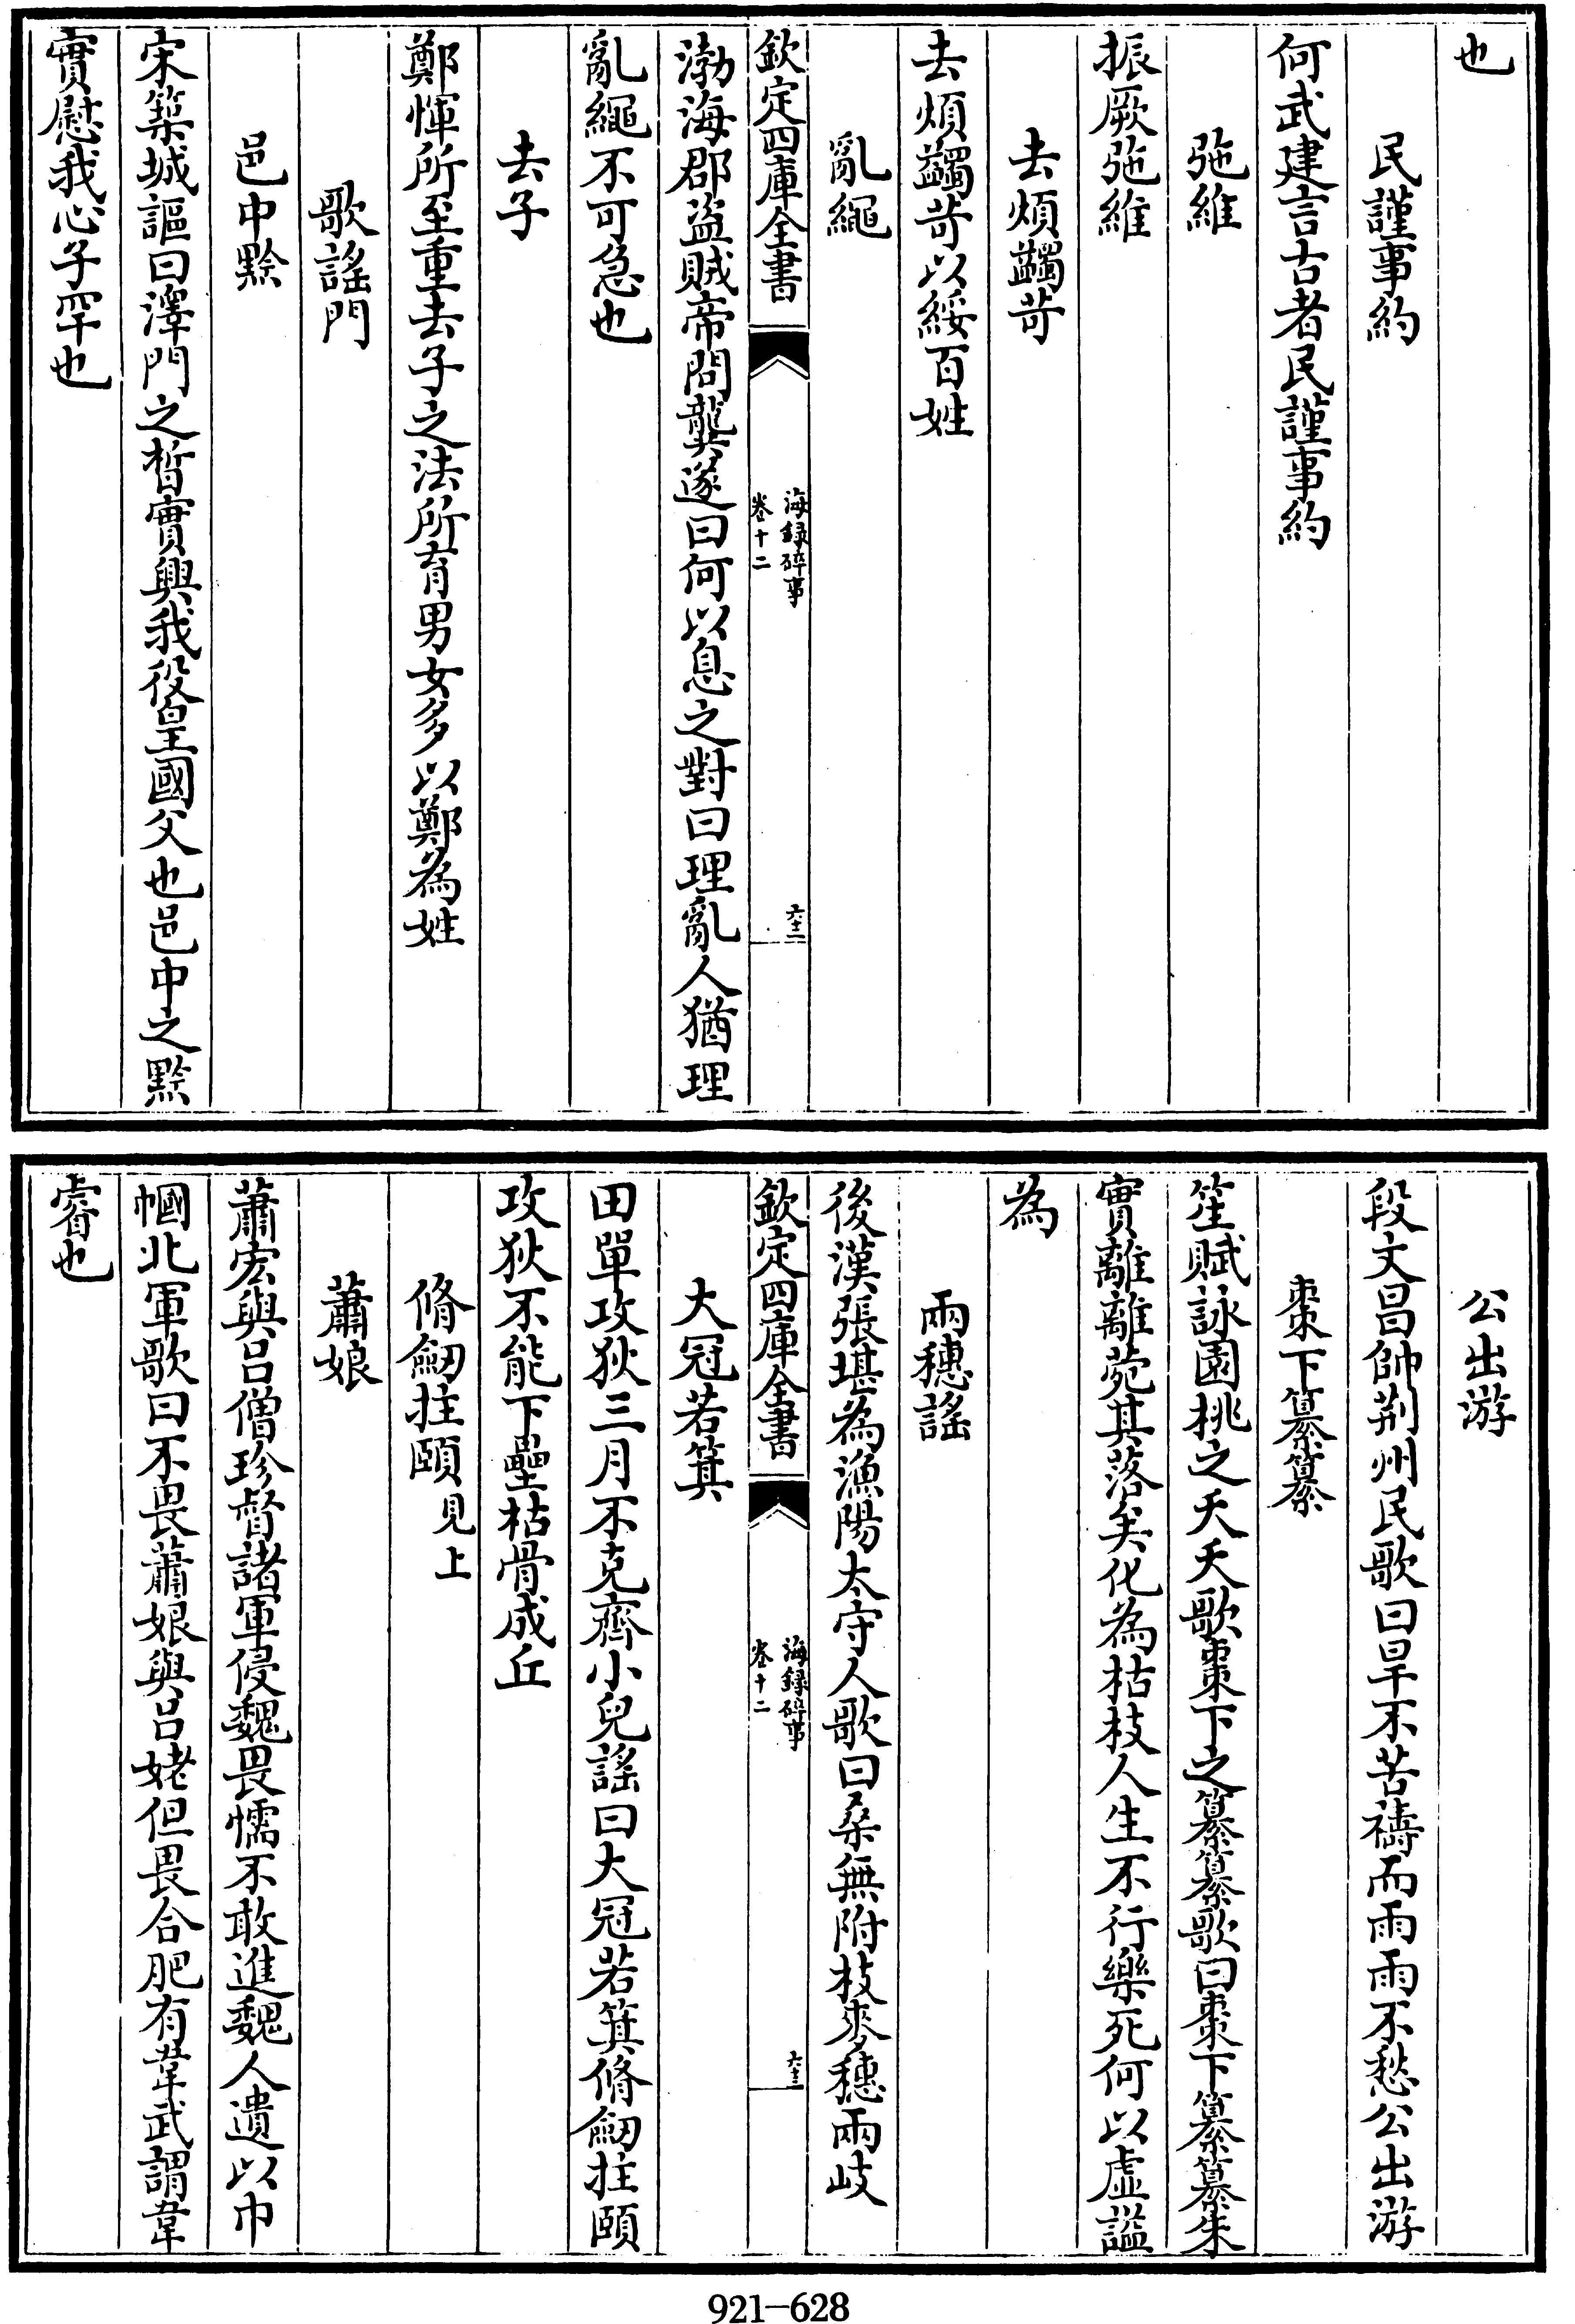 也
民謹事約
何武建言古者民謹事約
弛維
振厥弛維
去煩蠲苛
去煩蠲苛以綏百姓
亂繩
欽定四庫全書
海録碎事
卷十二
六十二
渤海郡盜賊帝問龔遂曰何以息之對曰理亂人猶理
亂繩不可急也
去子
鄭惲所至重去子之法所育男女多以鄭為姓
歌謠門
邑中黥
宋築城謳曰澤門之晳實興我役皇國父也邑中之黥
實慰我心子罕也
公出游
段文昌帥荆州民歌曰旱不苦禱而雨雨不愁公出游
棗下纂纂
笙賦詠園桃之夭夭歌棗下之纂纂歌曰棗下纂纂朱
實離離菀其落矣化為枯枝人生不行樂死何以虚謚
為
兩穗謠
後漢張堪為漁陽太守人歌曰桑無附枝麥穗兩岐
欽定四庫全書
海録碎事
卷十二
六十三
大冠若箕
田單攻狄三月不克齊小兒謠曰大冠若箕脩劒拄頤
攻狄不能下壘枯骨成丘
脩劒拄頤見上
蕭娘
蕭宏與吕僧珍督諸軍侵魏畏懦不敢進魏人遺以巾
幗北軍歌曰不畏蕭娘與吕姥但畏合肥有韋武謂韋
睿也
921-628